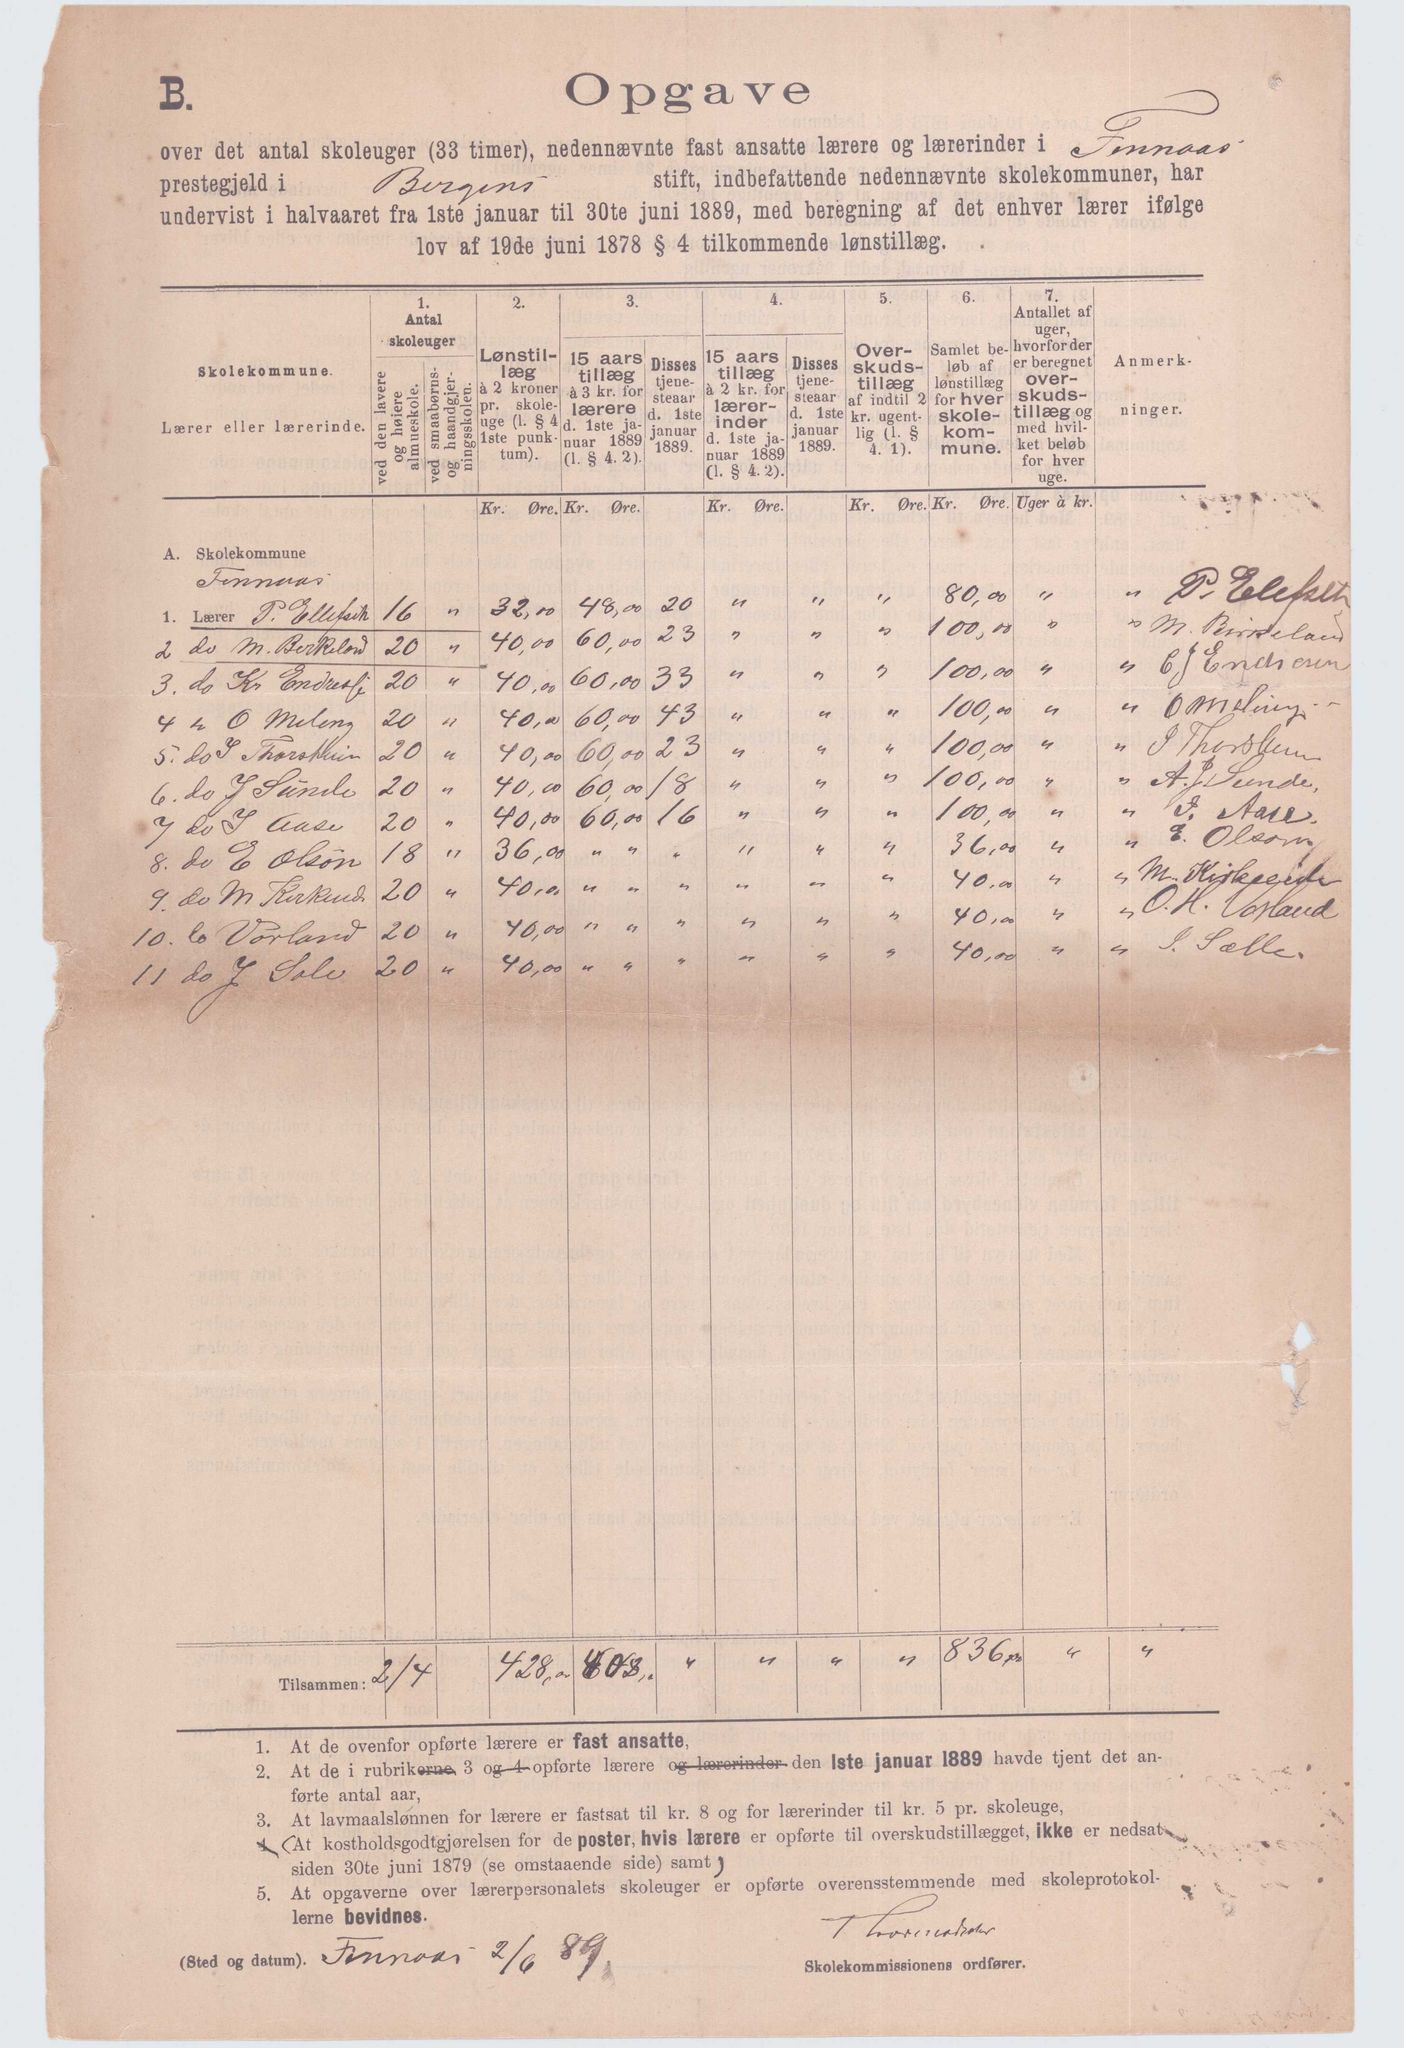 B. Opgave
over det antal skoleuger (33 timer), nedennævnte fast ansatte lærere og lærerinder i Finnaas
prestegjeld i Bergens stift, indbefattende nedennævnte skolekommuner, har
undervist i halvaaret fra 1ste januar til 30te juni 1889, med beregning af det enhver lærer ifølge
lov af 19de juni 1878 § 4 tilkommende lønstillæg.
Skolekommune.
Lærer eller lærerinde.
1.
Antal
skoleuger
ved den lavere
og høiere
almueskole.
ved smaabørns-
og haandgjer-
ningsskolen.
2.
Lønstil-
læg
à 2 kroner
pr. skole-
uge (l. § 4
1ste punk-
tum).
3.
15 aars
tillæg
à 3 kr. for
lærere
d. 1ste ja-
nuar 1889
(l. § 4. 2).
Disses
tjene-
steaar
d. 1ste
januar
1889.
4.
15 aars
tillæg
à 2 kr. for
lærer-
inder
d. 1ste ja-
nuar 1889
(l. § 4. 2).
Disses
tjene-
steaar
d. 1ste
januar
1889.
5.
Over-
skuds-
tillæg
af indtil 2
kr. ugent-
lig (l. §
4. 1).
6.
Samlet be-
løb af
lønstillæg
for hver
skole-
kom-
mune.
7.
Antallet af
uger,
hvorfor der
er beregnet
over-
skuds-
tillæg og
med hvil-
ket beløb
for hver
uge.
Anmerk-
ninger.
Kr. Øre. Kr. Øre. Kr. Øre. Kr. Øre. Kr. Øre. Uger à kr.
A. Skolekommune
Finnaas
1. Lærer P. Ellefseth 16 " 32,00 48,00 20 " " " 80,00 " " P. Elefseth
2 do M. Berkeland 20 " 40,00 60,00 23 " " " 100,00 " " M. Birkeland
3. do Kr Endresen 20 " 40,00 60,00 33 " " " 100,00 " " C J Endresen
4 " O Meling 20 " 40,00 60,00 43 " " " 100,00 " " O Meling
5. do J Thorsheim 20 " 40,00 60,00 23 " " " 100,00 " " J Thorsheim
6. do J Sunde 20 " 40,00 60,00 18 " " " 100,00 " " A. J Sunde.
7 do J Aase 20 " 40,00 60,00 16 " " " 100,00 " " J. Aase.
8. do E Olson 18 " 36,00 " " " " " " 36,00 " " E. Olson
9. do M Kirkeide 20 " 40,00 " " " " " " 40,00 " " M. Kirkeeide
10. do Vorland 20 " 40,00 " " " " " " 40,00 " " O. H. Vorland
11 do J Sele 20 " 40,00 " " " " " " 40,00 " " J. Sælle.
Tilsammen: 214 428,00 408,00 " " " " 836,00 " "
1. At de ovenfor opførte lærere er fast ansatte,
2. At de i rubrikerne 3 og 4 opførte lærere og lærerinder den 1ste januar 1889 havde tjent det an-
førte antal aar,
3. At lavmaalslønnen for lærere er fastsat til kr. 8 og for lærerinder til kr. 5 pr. skoleuge,
4 (At kostholdsgodtgjørelsen for de poster, hvis lærere er opførte til overskudstillægget, ikke er nedsat
siden 30te juni 1879 (se omstaaende side) samt)
5. At opgaverne over lærerpersonalets skoleuger er opførte overensstemmende med skoleprotokol-
lerne bevidnes.
(Sted og datum). Finnaas 2/6 89.
Skolekommissionens ordfører.